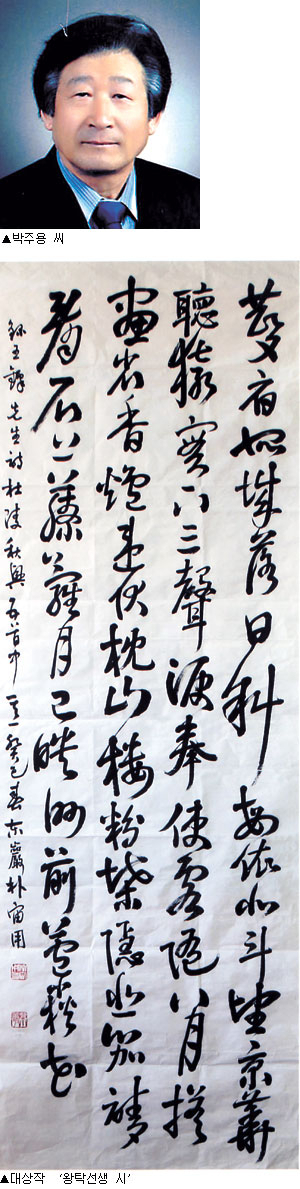 ▲박주용 씨
夔府孤城落日斜每依北斗望京華
聽猿實下三聲淚奉使虛隨八月槎
畫省香爐違伏枕山樓粉堞隱悲笳請
看石上藤蘿月已映洲前蘆荻花
王鐸先生詩杜陵秋興首中其一癸巳春東巖朴宙用
▲대상작 '왕탁선생 시'